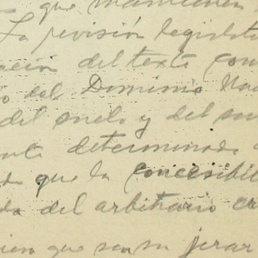 que mantienen
La revisión legislat
ación del texto con
o del Dominio Na
del suelo y del su
determinada
que la concesibil
da del arbitrario cr
que son su jerar